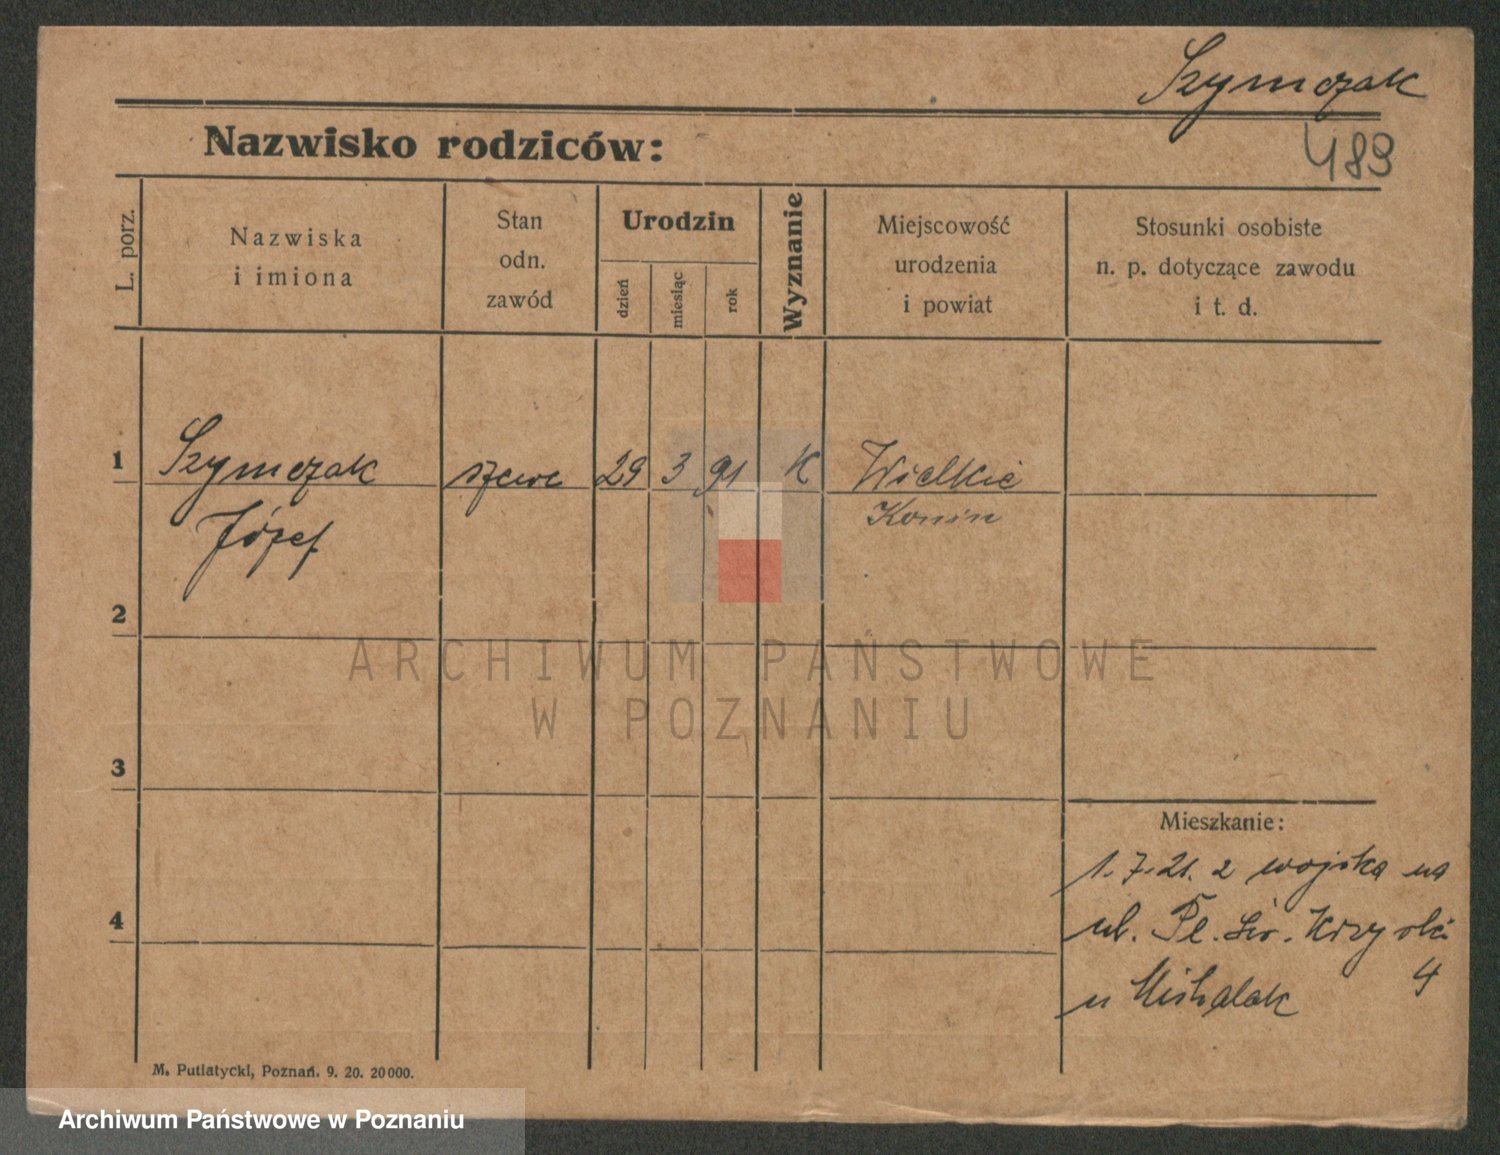 Szymczak
489
Nazwisko rodziców:
L. porz.
Nazwiska
i imiona
Stan
odn.
zawód
Urodzin
dzień
miesiąc
rok
Wyznanie
Miejscowość
urodzenia
i powiat
Stosunki osobiste
n. p. dotyczące zawodu
i t. d.
1 Szymczak szewc 29 3 91 K Wielkie
Józef Konin
2
ARCHIWUM PAŃSTWOWE
W POZNANIU
3
Mieszkanie:
1.7.21. z wojska na
4
ul. Pl. Św. Krzyski
4
u Michalak
M. Putiatycki, Poznań. 9. 20. 20000.
Archiwum Państwowe w Poznaniu